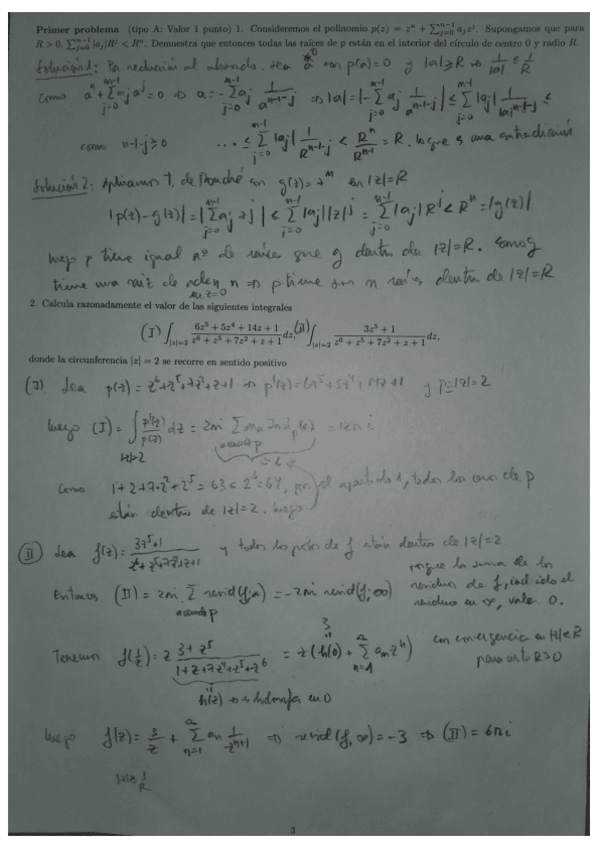 Primer problema (tipo A: Valor 1 punto) 1. Consideremos el polinomio p(z) = zⁿ + ∑_{j=0}^{n−1} a_j z^j. Supongamos que para
R > 0, ∑_{j=0}^{n−1} |a_j|R^j < Rⁿ. Demuestra que entonces todas las raíces de p están en el interior del círculo de centro 0 y radio R.
Solución 1: Por reducción al absurdo. Sea a con p(a)=0 y |a|≥R ⇒ 1/|a| ≤ 1/R
Como aⁿ + ∑_{j=0}^{n-1} a_j a^j = 0 ⇒ a = -∑_{j=0}^{n-1} a_j 1/a^{n-1-j} ⇒ |a| = |-∑_{j=0}^{n-1} a_j 1/a^{n-1-j}| ≤ ∑_{j=0}^{n-1} |a_j| 1/|a|^{n-1-j} ≤
como n-1-j≥0 ... ≤ ∑_{j=0}^{n-1} |a_j| 1/R^{n-1-j} < Rⁿ/R^{n-1} = R. lo que es una contradicción
Solución 2: Aplicamos T. de Rouché con g(z)=zⁿ en |z|=R
|p(z)-g(z)| = |∑_{j=0}^{n-1} a_j z^j| ≤ ∑_{j=0}^{n-1} |a_j||z|^j = ∑_{j=0}^{n-1} |a_j| R^j < Rⁿ = |g(z)|
luego p tiene igual nº de raíces que g dentro de |z|=R. Como g
tiene una raíz de orden n en z=0 ⇒ p tiene n raíces dentro de |z|=R
2. Calcula razonadamente el valor de las siguientes integrales
(I) ∫_{|z|=2} (6z⁵ + 5z⁴ + 14z + 1)/(z⁶ + z⁵ + 7z² + z + 1) dz, (II) ∫_{|z|=2} (3z⁵ + 1)/(z⁶ + z⁵ + 7z² + z + 1) dz,
donde la circunferencia |z| = 2 se recorre en sentido positivo
(I) Sea p(z) = z⁶+z⁵+7z²+z+1 ⇒ p'(z) = 6z⁵+5z⁴+14z+1 y |z|=2
luego (I) = ∫_{|z|=2} p'(z)/p(z) dz = 2πi ∑ = 12πi
=6
Como 1+2+7·2²+2⁵ = 63 < 2⁶ = 64, por el apartado 1, todos los ceros de p
están dentro de |z|=2. luego
(II) Sea f(z) = (3z⁵+1)/(z⁶+z⁵+7z²+z+1) y todos los polos de f están dentro de |z|=2.
Entonces (II) = 2πi ∑ resid(f;a) = -2πi resid(f;∞) porque la suma de los
residuos de f, incluido el
residuo en ∞, vale 0.
Tenemos f(1/z) = z (3+z⁵)/(1+z+7z⁴+z⁵+z⁶) = z(h(0) + ∑_{n=1} a_n zⁿ) con convergencia en |z|<R
para cierto R>0
3
h(z) es holomorfa en 0
luego f(z) = 3/z + ∑_{n=1} a_n 1/z^{n+1} ⇒ resid(f,∞) = -3 ⇒ (II) = 6πi
|z|> 1/R
3